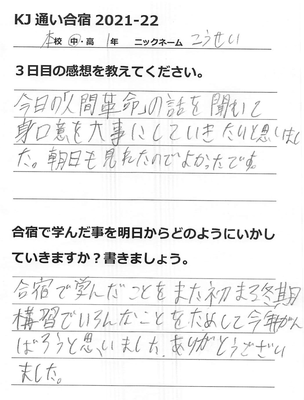 KJ 通い合宿 2021-22
本校 中・高 1年 ニックネーム こうせい
３日目の感想を教えてください。
今日の「人間革命」の話を聞いて
身口意を大事にしていきたいと思いまし
た。朝日も見れたのでよかったです。
合宿で学んだ事を明日からどのようにいかし
ていきますか？書きましょう。
合宿で学んだことをまた初まる冬期
構習でいろんなことをためして今年がん
ばろうと思いました。ありがとうござい
ました。